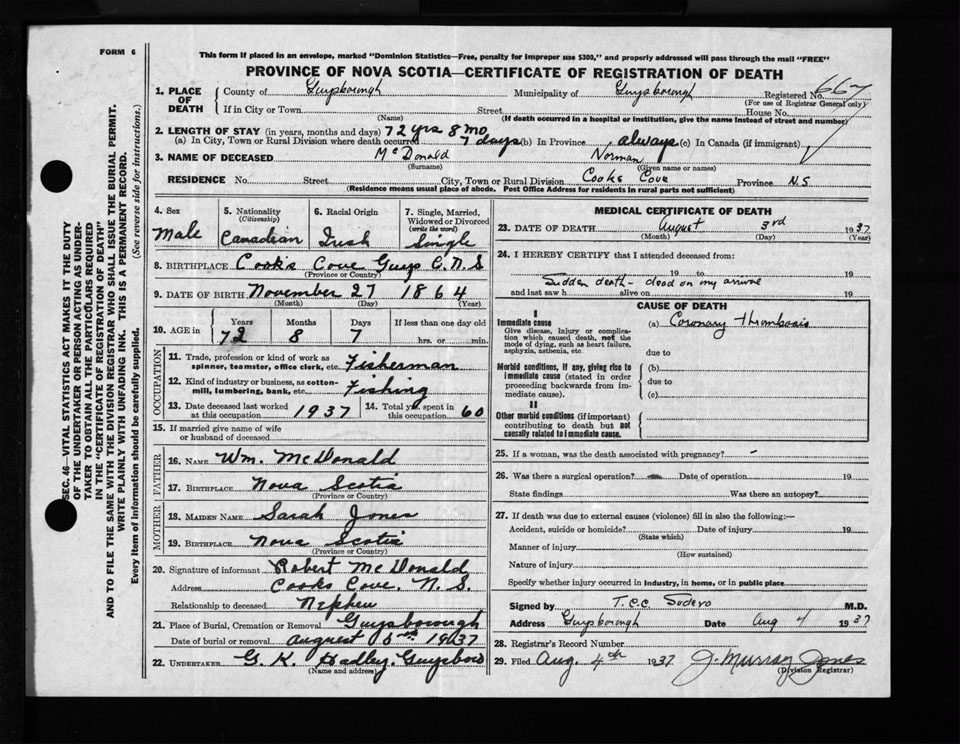 FORM 6
This form if placed in an envelope, marked "Dominion Statistics—Free, penalty for improper use $300," and properly addressed will pass through the mail "FREE"
PROVINCE OF NOVA SCOTIA—CERTIFICATE OF REGISTRATION OF DEATH
1. PLACE OF DEATH County of Guysborough Municipality of Guysborough Registered No. 667
(For use of Registrar General only)
If in City or Town Street House No.
(Name) (If death occurred in a hospital or institution, give name instead of street and number)
2. LENGTH OF STAY (in years, months and days) 72 yrs 8 mo
(a) In City, Town or Rural Division where death occurred 7 days (b) In Province always (c) In Canada (if immigrant)
3. NAME OF DECEASED McDonald Norman
(Surname) (Given name or names)
RESIDENCE No. Street City, Town or Rural Division Cooks Cove Province N.S
(Residence means usual place of abode. Post Office Address for residents in rural parts not sufficient)
SEC. 46—VITAL STATISTICS ACT MAKES IT THE DUTY
OF THE UNDERTAKER OR PERSON ACTING AS UNDER-
TAKER TO OBTAIN ALL THE PARTICULARS REQUIRED
IN THE "CERTIFICATE OF REGISTRATION OF DEATH"
AND TO FILE THE SAME WITH THE DIVISION REGISTRAR WHO SHALL ISSUE THE BURIAL PERMIT.
WRITE PLAINLY WITH UNFADING INK. THIS IS A PERMANENT RECORD.
Every item of information should be carefully supplied. (See reverse side for instructions.)
4. Sex 5. Nationality (Citizenship) 6. Racial Origin 7. Single, Married, Widowed or Divorced (write the word)
Male Canadian Irish Single
8. BIRTHPLACE Cook's Cove Guys C. N.S
(Province or Country)
9. DATE OF BIRTH November 27 1864
(Month) (Day) (Year)
10. AGE in Years Months Days If less than one day old
72 8 7 hrs. or min.
OCCUPATION
11. Trade, profession or kind of work as spinner, teamster, office clerk, etc. Fisherman
12. Kind of industry or business, as cotton-mill, lumbering, bank, etc. Fishing
13. Date deceased last worked at this occupation 1937 14. Total yrs. spent in this occupation 60
15. If married give name of wife or husband of deceased
FATHER
16. NAME Wm. McDonald
17. BIRTHPLACE Nova Scotia
(Province or Country)
MOTHER
18. MAIDEN NAME Sarah Jones
19. BIRTHPLACE Nova Scotia
(Province or Country)
20. Signature of informant Robert McDonald
Address Cooks Cove, N.S.
Relationship to deceased Nephew
21. Place of Burial, Cremation or Removal Guysborough
Date of burial or removal August 1937
22. UNDERTAKER G. K. Hadley. Guysboro
(Name and address)
MEDICAL CERTIFICATE OF DEATH
23. DATE OF DEATH August 3rd 1937
(Month) (Day) (Year)
24. I HEREBY CERTIFY that I attended deceased from:
19 to 19
Sudden death - dead on my arrival
and last saw h alive on 19
CAUSE OF DEATH
I
Immediate cause (a) Coronary thrombosis
Give disease, injury or complication which caused death, not the mode of dying, such as heart failure, asphyxia, asthenia, etc.
due to
Morbid conditions, if any, giving rise to immediate cause (stated in order proceeding backwards from immediate cause).
(b)
due to
(c)
II
Other morbid conditions (if important) contributing to death but not causally related to immediate cause.
25. If a woman, was the death associated with pregnancy? -
26. Was there a surgical operation? Date of operation 19
State findings Was there an autopsy?
27. If death was due to external causes (violence) fill in also the following:—
Accident, suicide or homicide? Date of injury 19
(State which)
Manner of injury
(How sustained)
Nature of injury
Specify whether injury occurred in industry, in home, or in public place
Signed by T.C.C Sodero M.D.
Address Guysborough Date Aug 4 1937
28. Registrar's Record Number
29. Filed Aug. 4th 1937 J. Murray Jones
(Division Registrar)